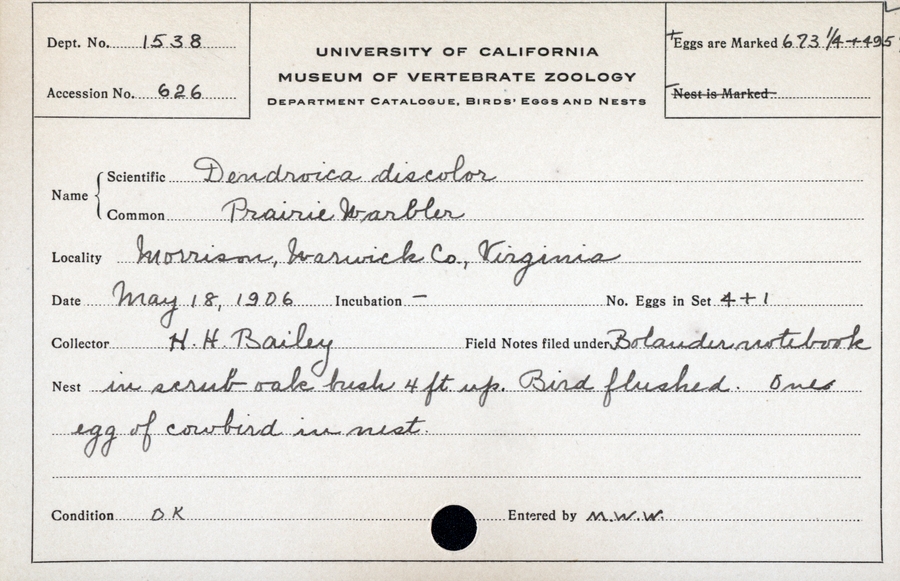 Dept. No. 1538
Accession No. 626
UNIVERSITY OF CALIFORNIA
MUSEUM OF VERTEBRATE ZOOLOGY
DEPARTMENT CATALOGUE, BIRDS' EGGS AND NESTS
+Eggs are Marked 673 1/4+495
Nest is Marked
Name
Scientific Dendroica discolor
Common Prairie Warbler
Locality Morrison, Warwick Co., Virginia
Date May 18, 1906 Incubation — No. Eggs in Set 4+1
Collector H. H. Bailey Field Notes filed under Bolander notebook
Nest in scrub oak bush 4 ft up. Bird flushed. One
egg of cowbird in nest.
Condition OK Entered by M.W.W.